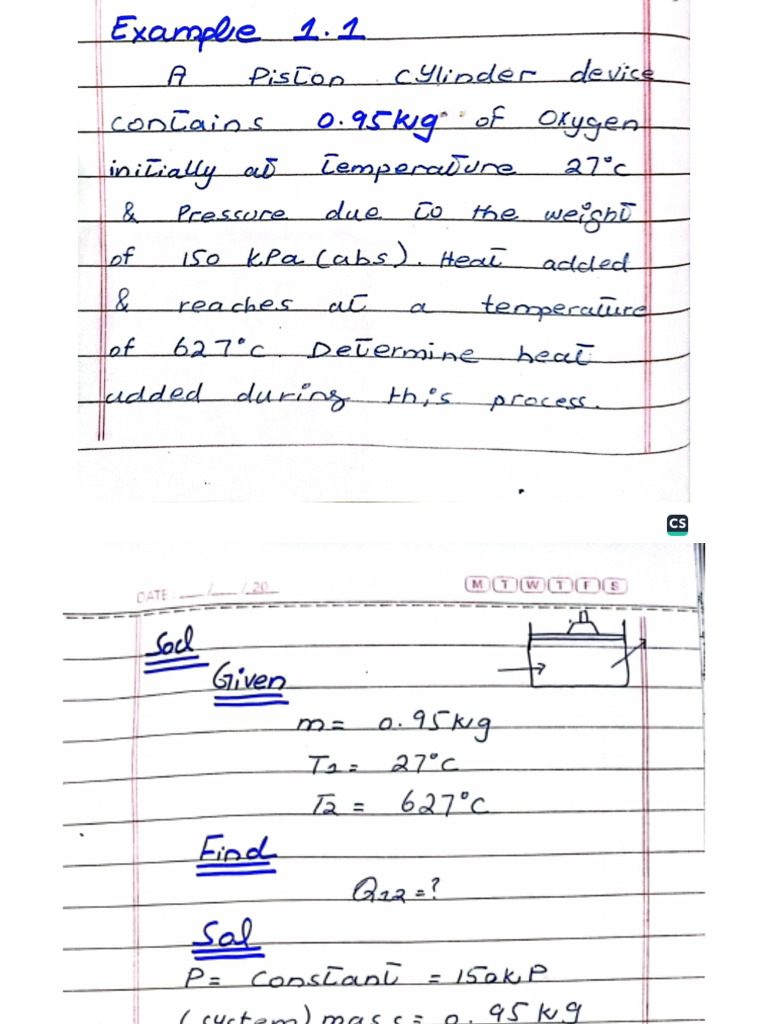 Example 1.1
A Piston cylinder device
contains 0.95kg of oxygen
initially at temperature 27°c
& Pressure due to the weight
of 150 kPa (abs). Heat added
& reaches at a temperature
of 627°c. Determine heat
added during this process.
CS
DATE: __/__/20__
M T W T F S
Sol
Given
m= 0.95kg
T1= 27°C
T2= 627°C
Find
Q12=?
Sol
P= Constant = 150kP
(system) mass= 0.95kg